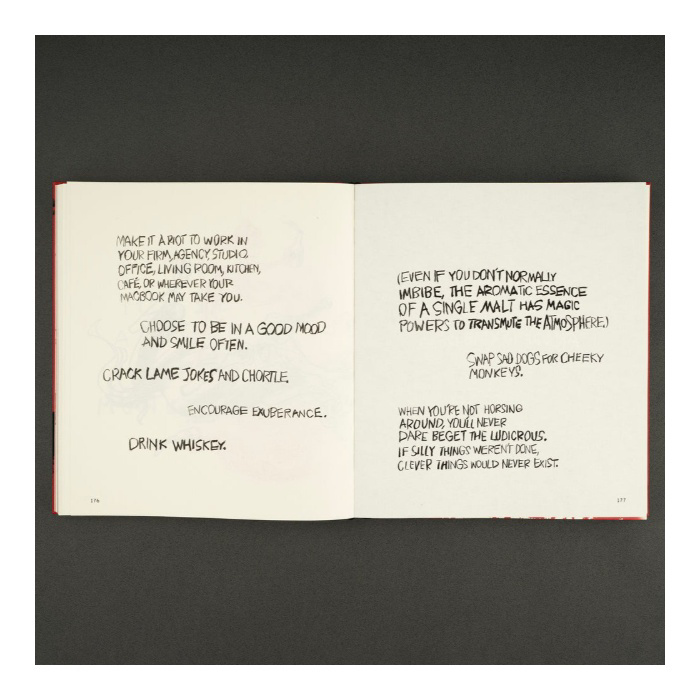 MAKE IT A RIOT TO WORK IN
YOUR FIRM, AGENCY, STUDIO,
OFFICE, LIVING ROOM, KITCHEN,
CAFÉ, OR WHEREVER YOUR
MACBOOK MAY TAKE YOU.
CHOOSE TO BE IN A GOOD MOOD
AND SMILE OFTEN.
CRACK LAME JOKES AND CHORTLE.
ENCOURAGE EXUBERANCE.
DRINK WHISKEY.
176
(EVEN IF YOU DON'T NORMALLY
IMBIBE, THE AROMATIC ESSENCE
OF A SINGLE MALT HAS MAGIC
POWERS TO TRANSMUTE THE ATMOSPHERE.)
SWAP SAD DOGS FOR CHEEKY
MONKEYS.
WHEN YOU'RE NOT HORSING
AROUND, YOU'LL NEVER
DARE BEGET THE LUDICROUS.
IF SILLY THINGS WEREN'T DONE,
CLEVER THINGS WOULD NEVER EXIST.
177